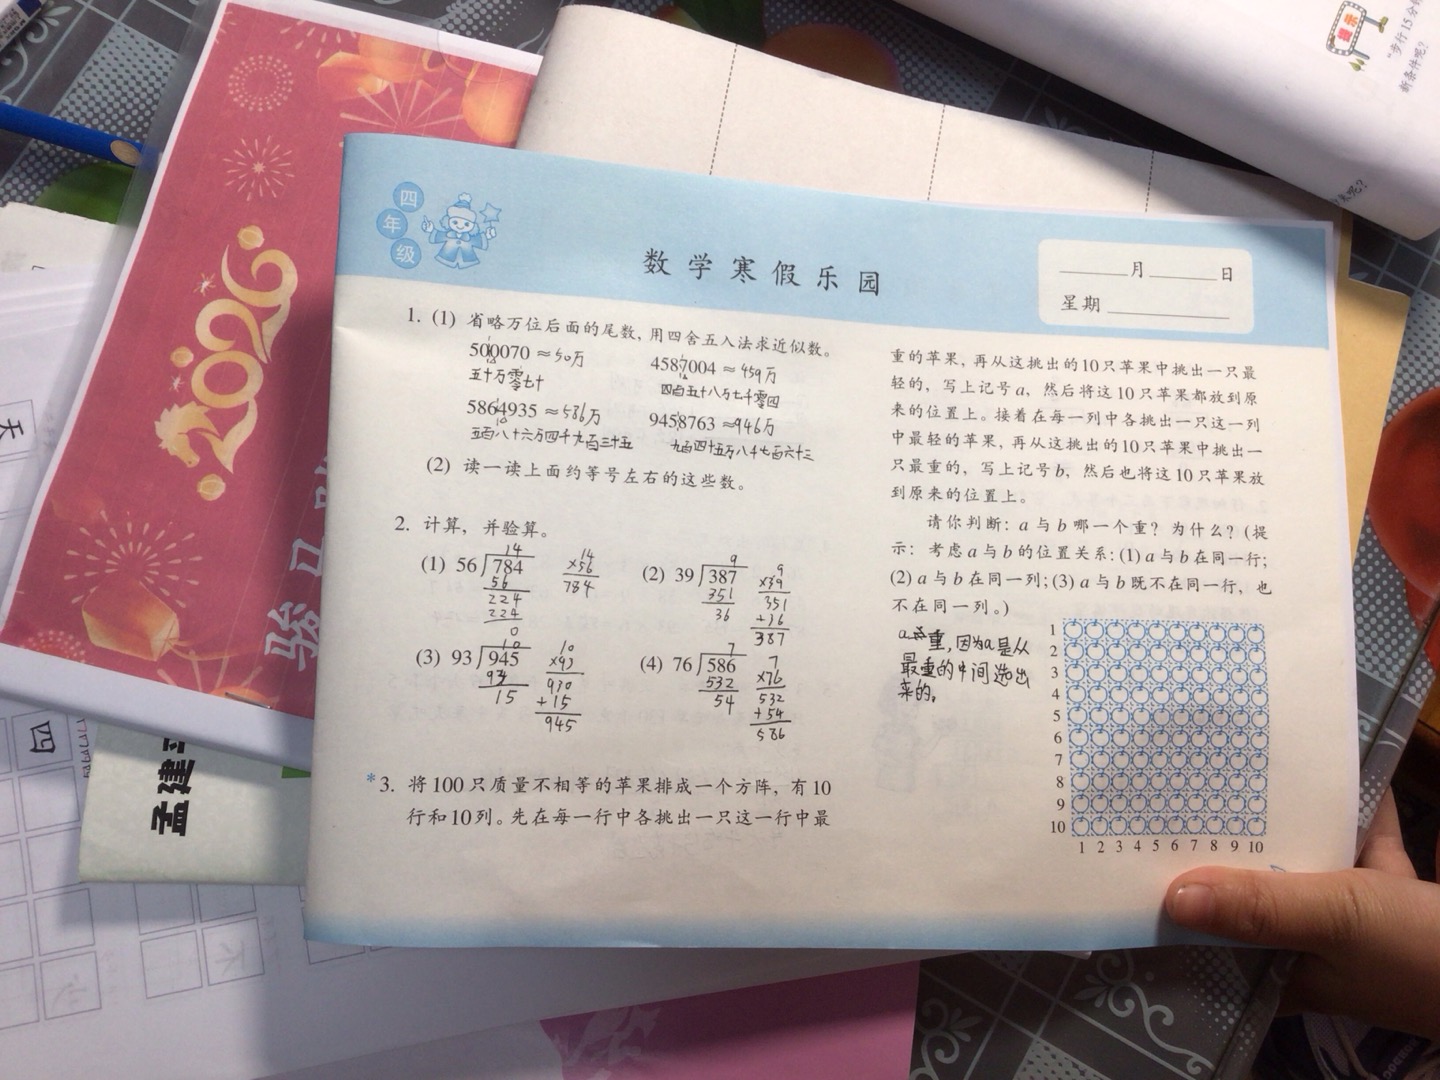 四年级
数学寒假乐园
______月______日
星期__________
1. (1) 省略万位后面的尾数,用四舍五入法求近似数。
500070≈50万
4587004≈459万
五十万零七十
四百五十八万七千零四
5864935≈586万
9458763≈946万
五百八十六万四千九百三十五
九百四十五万八千七百六十三
(2) 读一读上面约等号左右的这些数。
2. 计算,并验算。
(1) 56 784
14
56
224
224
0
14
×56
784
(2) 39 387
9
351
36
9
×39
351
+36
387
(3) 93 945
10
93
15
10
×93
930
+15
945
(4) 76 586
7
532
54
7
×76
532
+54
586
*3. 将100只质量不相等的苹果排成一个方阵,有10
行和10列。先在每一行中各挑出一只这一行中最
重的苹果,再从这挑出的10只苹果中挑出一只最
轻的,写上记号a,然后将这10只苹果都放到原
来的位置上。接着在每一列中各挑出一只这一列
中最轻的苹果,再从这挑出的10只苹果中挑出一
只最重的,写上记号b,然后也将这10只苹果放
到原来的位置上。
请你判断:a与b哪一个重?为什么?(提
示:考虑a与b的位置关系:(1)a与b在同一行;
(2)a与b在同一列;(3)a与b既不在同一行,也
不在同一列。)
a重,因为a是从
最重的中间选出
来的。
1
2
3
4
5
6
7
8
9
10
1 2 3 4 5 6 7 8 9 10
2026
孟建
天
四
提示
"步行15分
新条件呢?